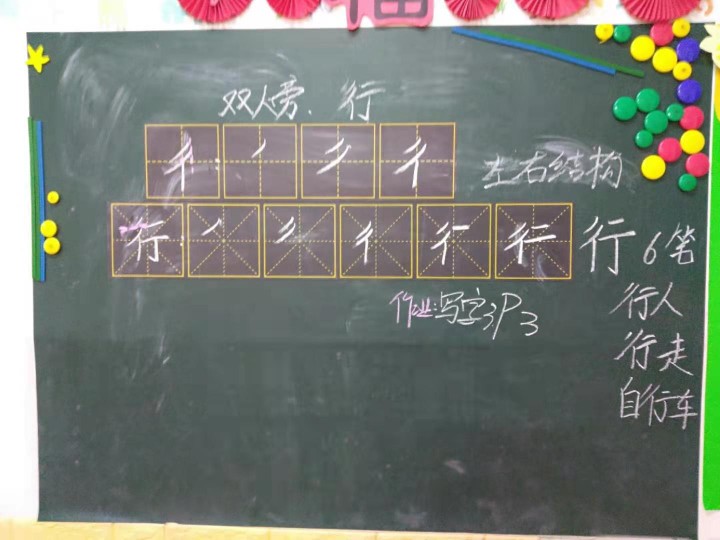 福
双人旁、行
彳 丿 彳 彳
左右结构
行 丿 彳 彳 行 行 行 6笔
作业:写字3P3
行人
行走
自行车